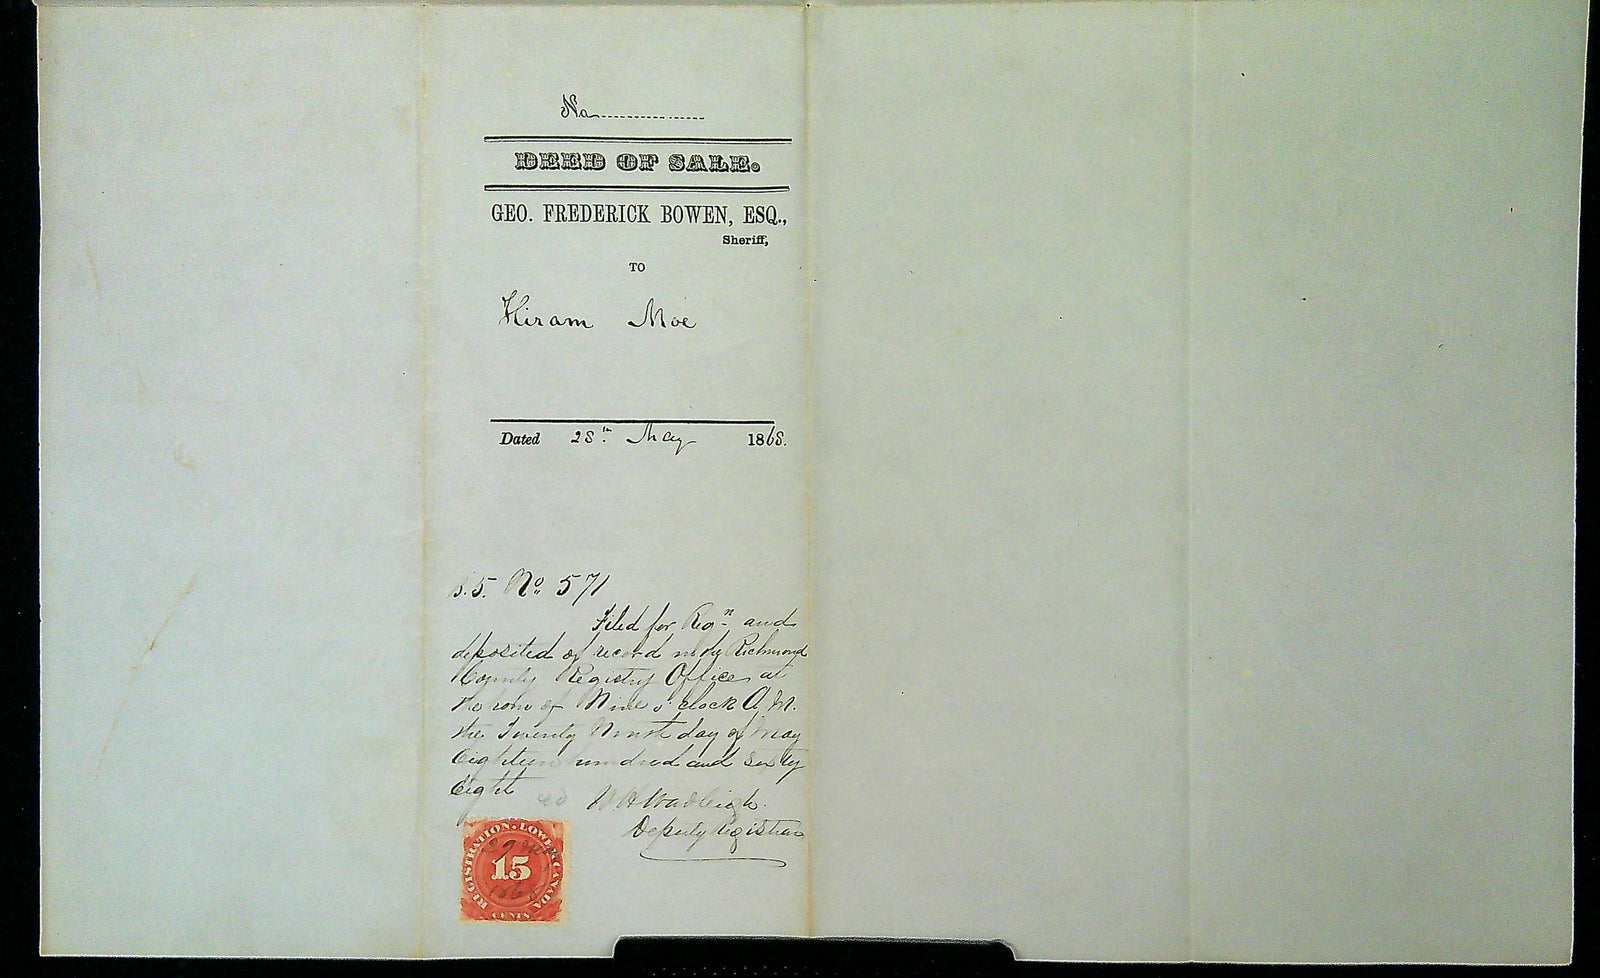 No
DEED OF SALE.
GEO. FREDERICK BOWEN, ESQ.,
Sheriff,
TO
Hiram Moe
Dated 28th May 1868.
B.5. No 571
Filed for Regn and
deposited of record in the Richmond
County Registry Office at
the hour of Nine o'clock A.M.
the Twenty Ninth day of May
Eighteen hundred and sixty
Eight
W H Wadleigh.
Deputy Registrar
REGISTRATION. LOWER CANADA
29 May
15
1868
CENTS